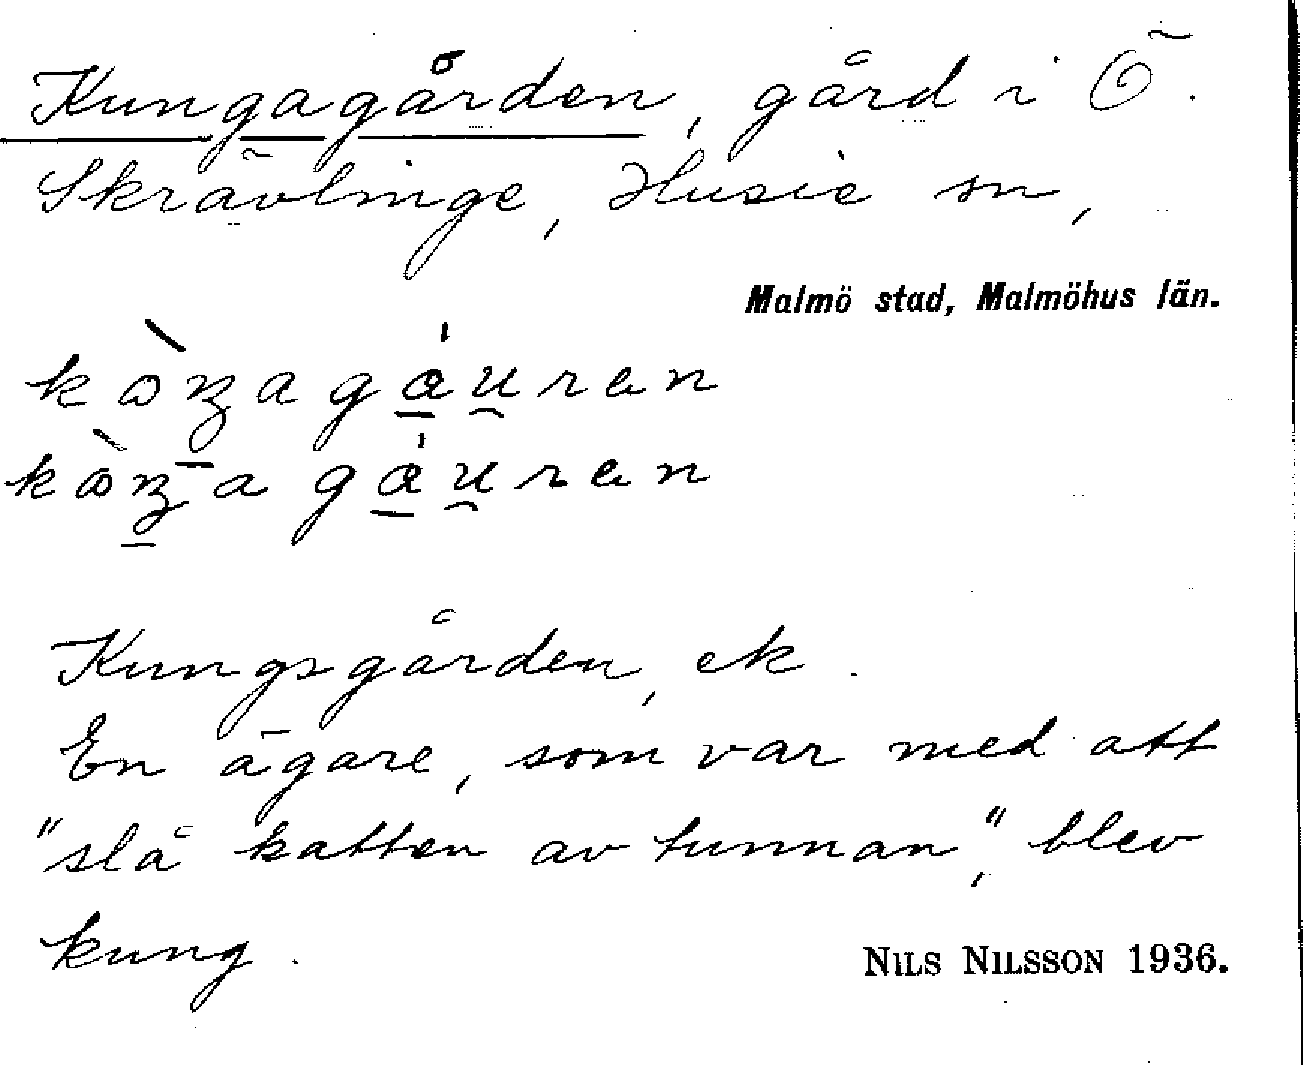 Kungagården, gård i Ö.
Skrävlinge, Husie sn,
Malmö stad, Malmöhus län.
Kungsgården, ek.
En ägare, som var med att
"slå katten av tunnan," blev
kung.
NILS NILSSON 1936.